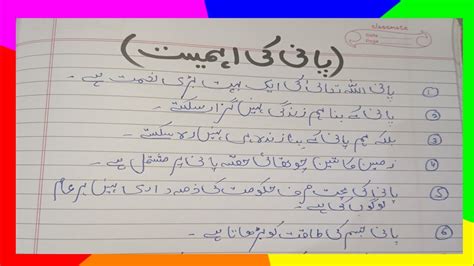 classmate
Date
Page
(پانی کی اہمیت)
① پانی اللہ تعالیٰ کی ایک بہت بڑی نعمت ہے۔
② پانی کے بنا ہم زندگی نہیں گزار سکتے۔
③ بلکہ ہم پانی کے بنا زندہ ہی نہیں رہ سکتے۔
④ زمین کا تین چوتھائی حصّہ پانی پر مشتمل ہے۔
⑤ پانی کی بچت صرف حکومت کی ذمہ داری نہیں ہر عام
لوگوں کی ہے۔
⑥ پانی جسم کی طاقت کو بڑھاتا ہے۔